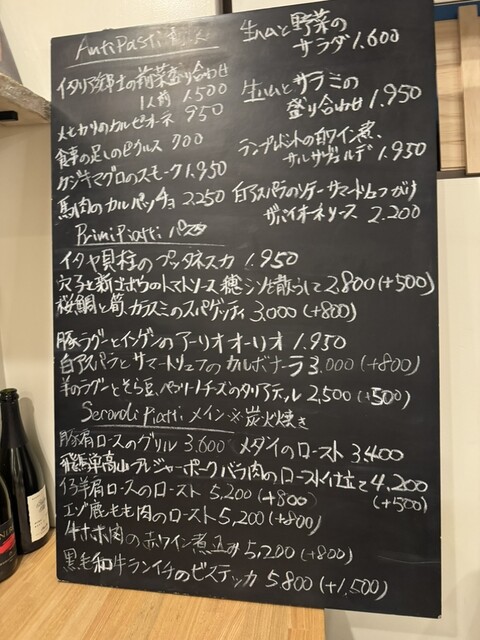 AntiPasti 前菜
イタリア郷土の前菜盛り合わせ
1人前 1,500
メヒカリのカルピオーネ 950
食事の足しのピクルス 700
カジキマグロのスモーク 1,950
馬肉のカルパッチョ 2,250
生ハムと野菜の
サラダ 1,600
生ハムとサラミの
盛り合わせ 1,950
ランプレドットの白ワイン煮、
サルサヴェルデ 1,950
白アスパラのソテー サマートリュフがけ
ザバイオネソース 2,200
Primi Piatti パスタ
イタヤ貝柱のプッタネスカ 1,950
穴子と新ごぼうのトマトソース 穂シソを散らして 2,800 (+500)
桜鯛と筍、カラスミのスパゲッティ 3,000 (+800)
豚ラグーとインゲンのアーリオオーリオ 1,950
白アスパラとサマートリュフのカルボナーラ 3,000 (+800)
羊のラグーとそら豆、ペコリーノチーズのタリアテッレ 2,500 (+500)
Secondi Piatti メイン ※炭火焼き
豚肩ロースのグリル 3,600 メダイのロースト 3,400
飛騨高山 ラレジャーポーク バラ肉のロースト仕立て 4,200
(+500)
仔羊肩ロースのロースト 5,200 (+800)
エゾ鹿もも肉のロースト 5,200 (+800)
牛ホホ肉の赤ワイン煮込み 5,200 (+800)
黒毛和牛ランイチのビステッカ 5,800 (+1,500)